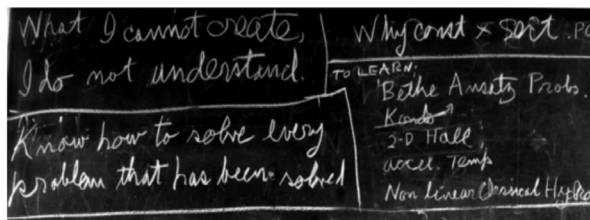 What I cannot create,
I do not understand.
Know how to solve every
problem that has been solved
Why const × sort .PO
TO LEARN:
Bethe Ansatz Probs.
Kondo
2-D Hall
accel. Temp
Non linear Classical Hydro